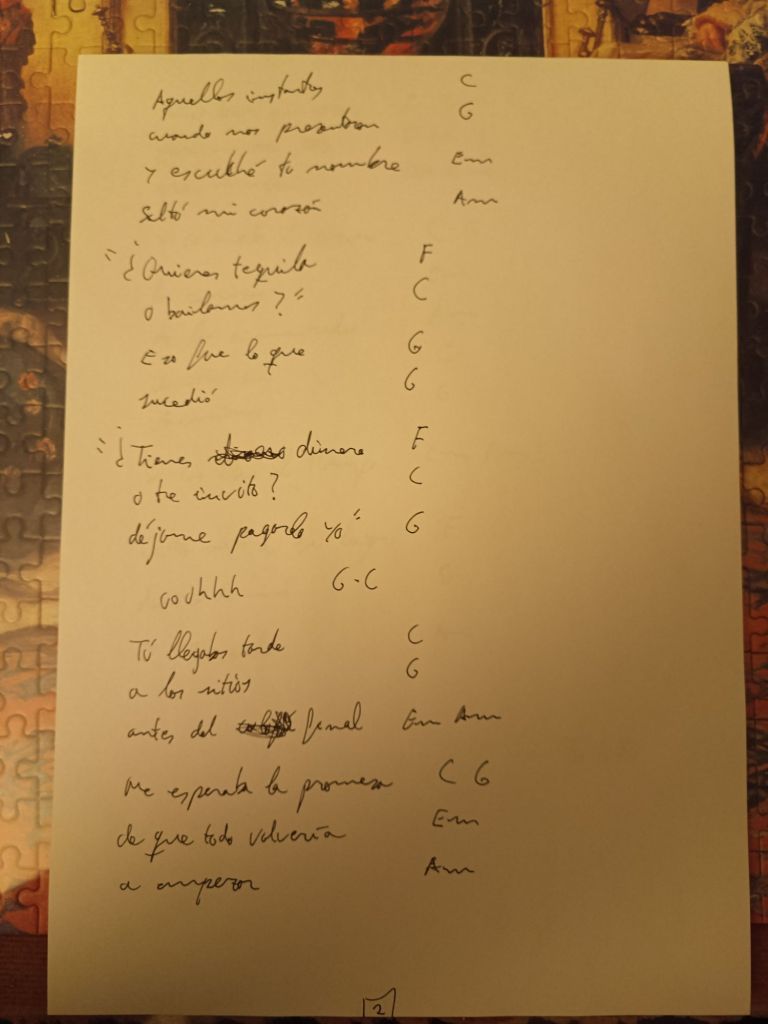 Aquellos instantes C
cuando nos presentaron G
y escuché tu nombre Em
saltó mi corazón Am
"¿Quieres tequila F
o bailamos?" C
Eso fue lo que G
sucedió G
"¿Tienes dinero F
o te invito? C
déjame pagarlo yo" G
uouhhh G-C
Tú llegabas tarde C
a los sitios G
antes del final Em Am
Me esperaba la promesa C G
de que todo volvería Em
a empezar Am
2